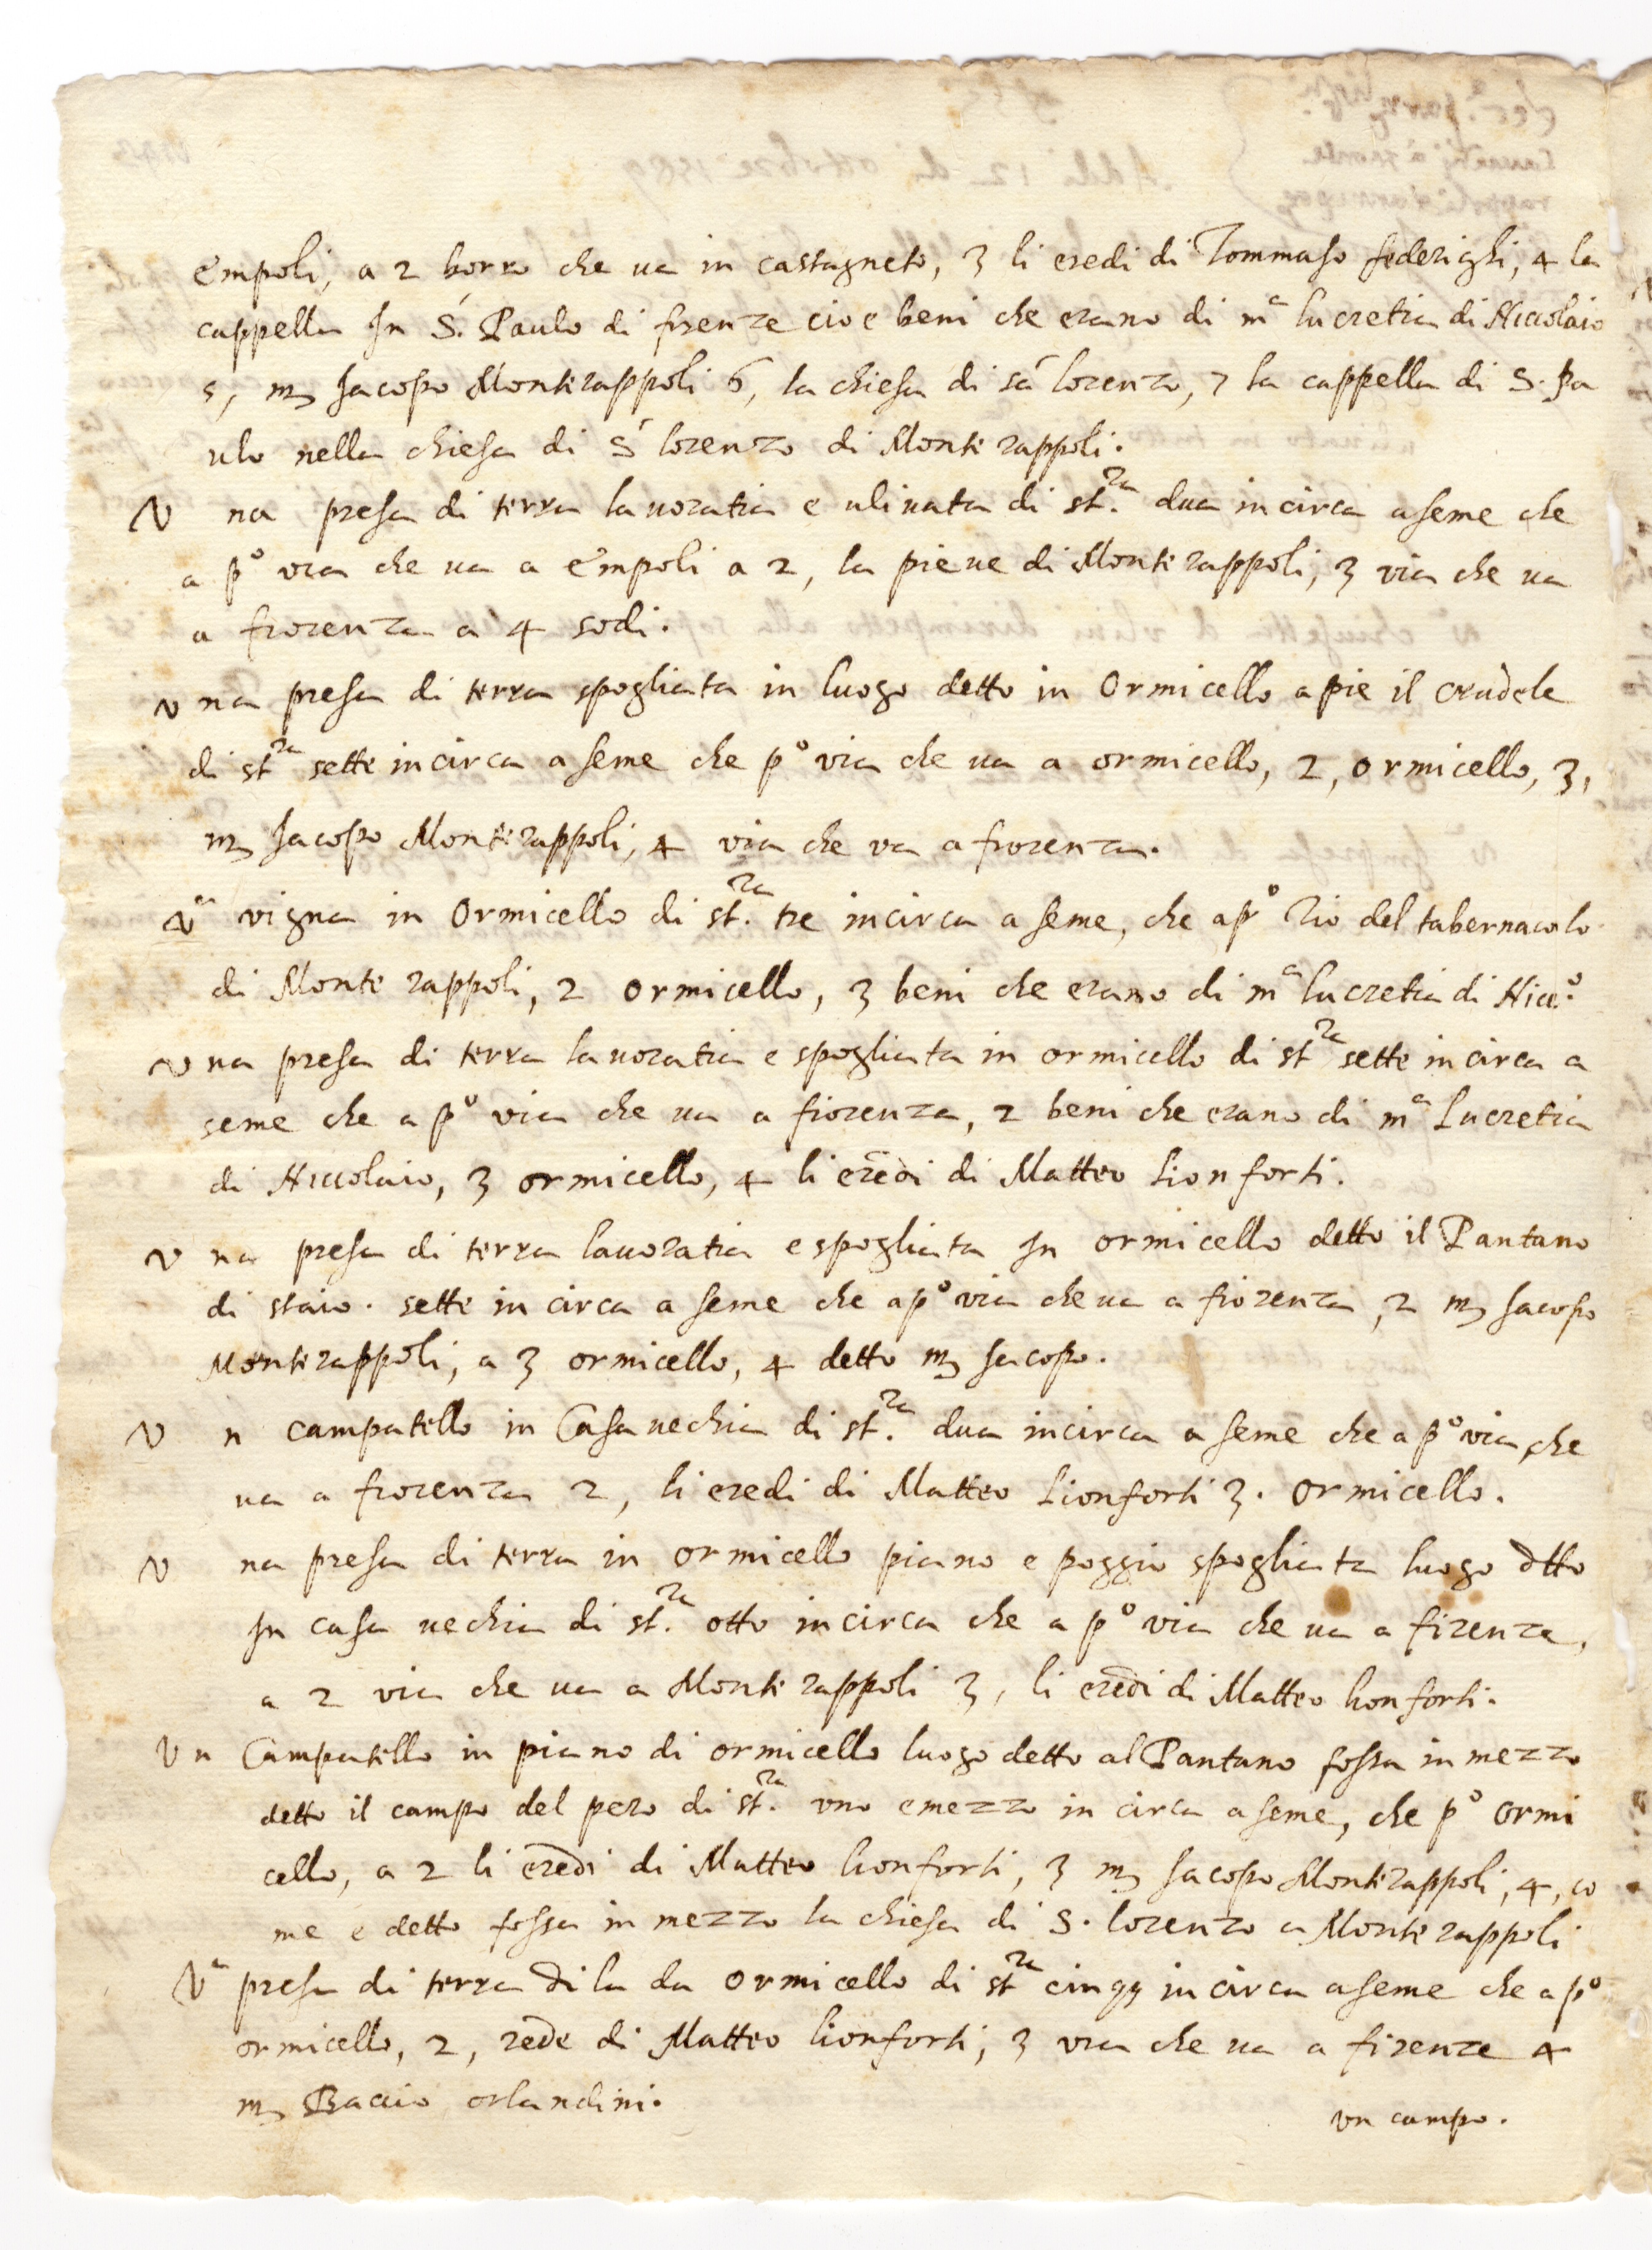 Empoli, a 2 borro che ua in castagneto, 3 li eredi di Tommaso federighi, 4 la
cappella In S. Paulo di firenze cioe beni che erano di mᵃ lucretia di Niccolaio
5, mͫ Jacopo Monterappoli 6, la chiesa di sā lorenzo, 7 la cappella di S. Pa
ulo nella chiesa di S lorenzo di Monte rappoli.
V na presa di terra lauoratia e uliuata di st.ʳᵃ dua in circa a seme che
a pº via che ua a Empoli a 2, la pieue di Monte rappoli, 3 via che ua
a fiorenza a 4 sodi.
v na presa di terra spogliata in luogo detto in Ormicello a pie il crudele
di stʳᵃ sette in circa a seme che pº via che ua a ormicello, 2, ormicello, 3,
m Jacopo Monterappoli, 4 via che va a fiorenza.
Vᵃ vigna in Ormicello di st.ʳᵃ tre in circa a seme, che a pº Rio del tabernacolo
di Monte rappoli, 2 ormicello, 3 beni che erano di mᵃ lucretia di Nicc.º
v na presa di terra lauoratia e spogliata in ormicello di stʳᵃ sette in circa a
seme che a pº via che ua a fiorenza, 2 beni che erano di mᵃ Lucretia
di Niccolaio, 3 ormicello, 4 li eredi di Matteo Lionforti.
v na presa di terra lauoratia e spogliata In ormicello detto il Pantano
di staio. sette in circa a seme che a pº via che ua a fiorenza, 2 m Jacopo
Monterappoli, a 3 ormicello, 4 detto m Jacopo.
V n campatello in Casa uechia di st.ʳᵃ dua in circa a seme che a pº via, che
ua a fiorenza 2, li eredi di Matteo Lionforti 3. Ormicello.
V na presa di terra in ormicello piano e poggio spogliata luogo dtto
In casa uechia di st.ʳᵃ otto in circa che a pº via che ua a firenze,
a 2 via che ua a Monte rappoli 3, li eredi di Matteo lionforti.
V n Campatello in piano di ormicello luogo detto al Pantano fossa in mezzo
detto il campo del pero di st.ʳᵃ vno e mezzo in circa a seme, che pº ormi
cello, a 2 li eredi di Matteo lionforti, 3 m Jacopo Monterappoli, 4, co
me e detto fossa in mezzo la chiesa di S. lorenzo a Monte rappoli
Vᵃ presa di terra di la da ormicello di stʳᵃ cinqȝ in circa a seme che a pº
ormicello, 2, rede di Matteo lionforti, 3 via che ua a firenze 4
m Baccio orlandini.
vn campo.